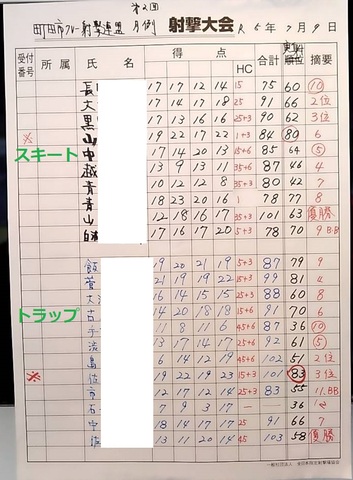 第2回
町田市クレー射撃連盟 月例 射撃大会 R 5年 7月 9日
受付番号 所属 氏名 得点 HC 合計 順位 摘要
長 17 17 12 14 15 75 60 ⑩
大 17 14 17 18 25 91 66 2位
黒 17 13 16 16 25+3 90 62 3位
※ 山 19 22 17 22 1+3 84 80 6
スキート
中 17 14 20 13 15+6 85 64 ⑤
越 13 9 13 11 35+6 87 46 4
青 10 12 12 8 35+3 80 42 7
青 18 23 20 16 1 78 77 8
山 12 18 16 17 35+3 101 63 優勝
白 17 16 17 20 5+3 78 70 9 BB
飯 19 20 21 19 5+3 87 79 9
菅 21 19 19 22 15+3 99 81 4
大 16 14 15 15 25+3 88 60 8
トラップ
古 14 20 18 18 15+6 91 70 6
11 8 11 6 45+6 87 36 ⑩
13 17 14 17 25+6 92 61 ⑤
6 14 12 19 45+6 102 51 2位
※ 佐 19 22 19 23 15+3 101 83 3位
市 12 17 12 14 25+3 83 55 11.BB
石 7 9 3 17 — 36
中 18 14 17 17 25 91 66 7
13 11 20 14 45 103 58 優勝
一般社団法人 全日本指定射撃場協会